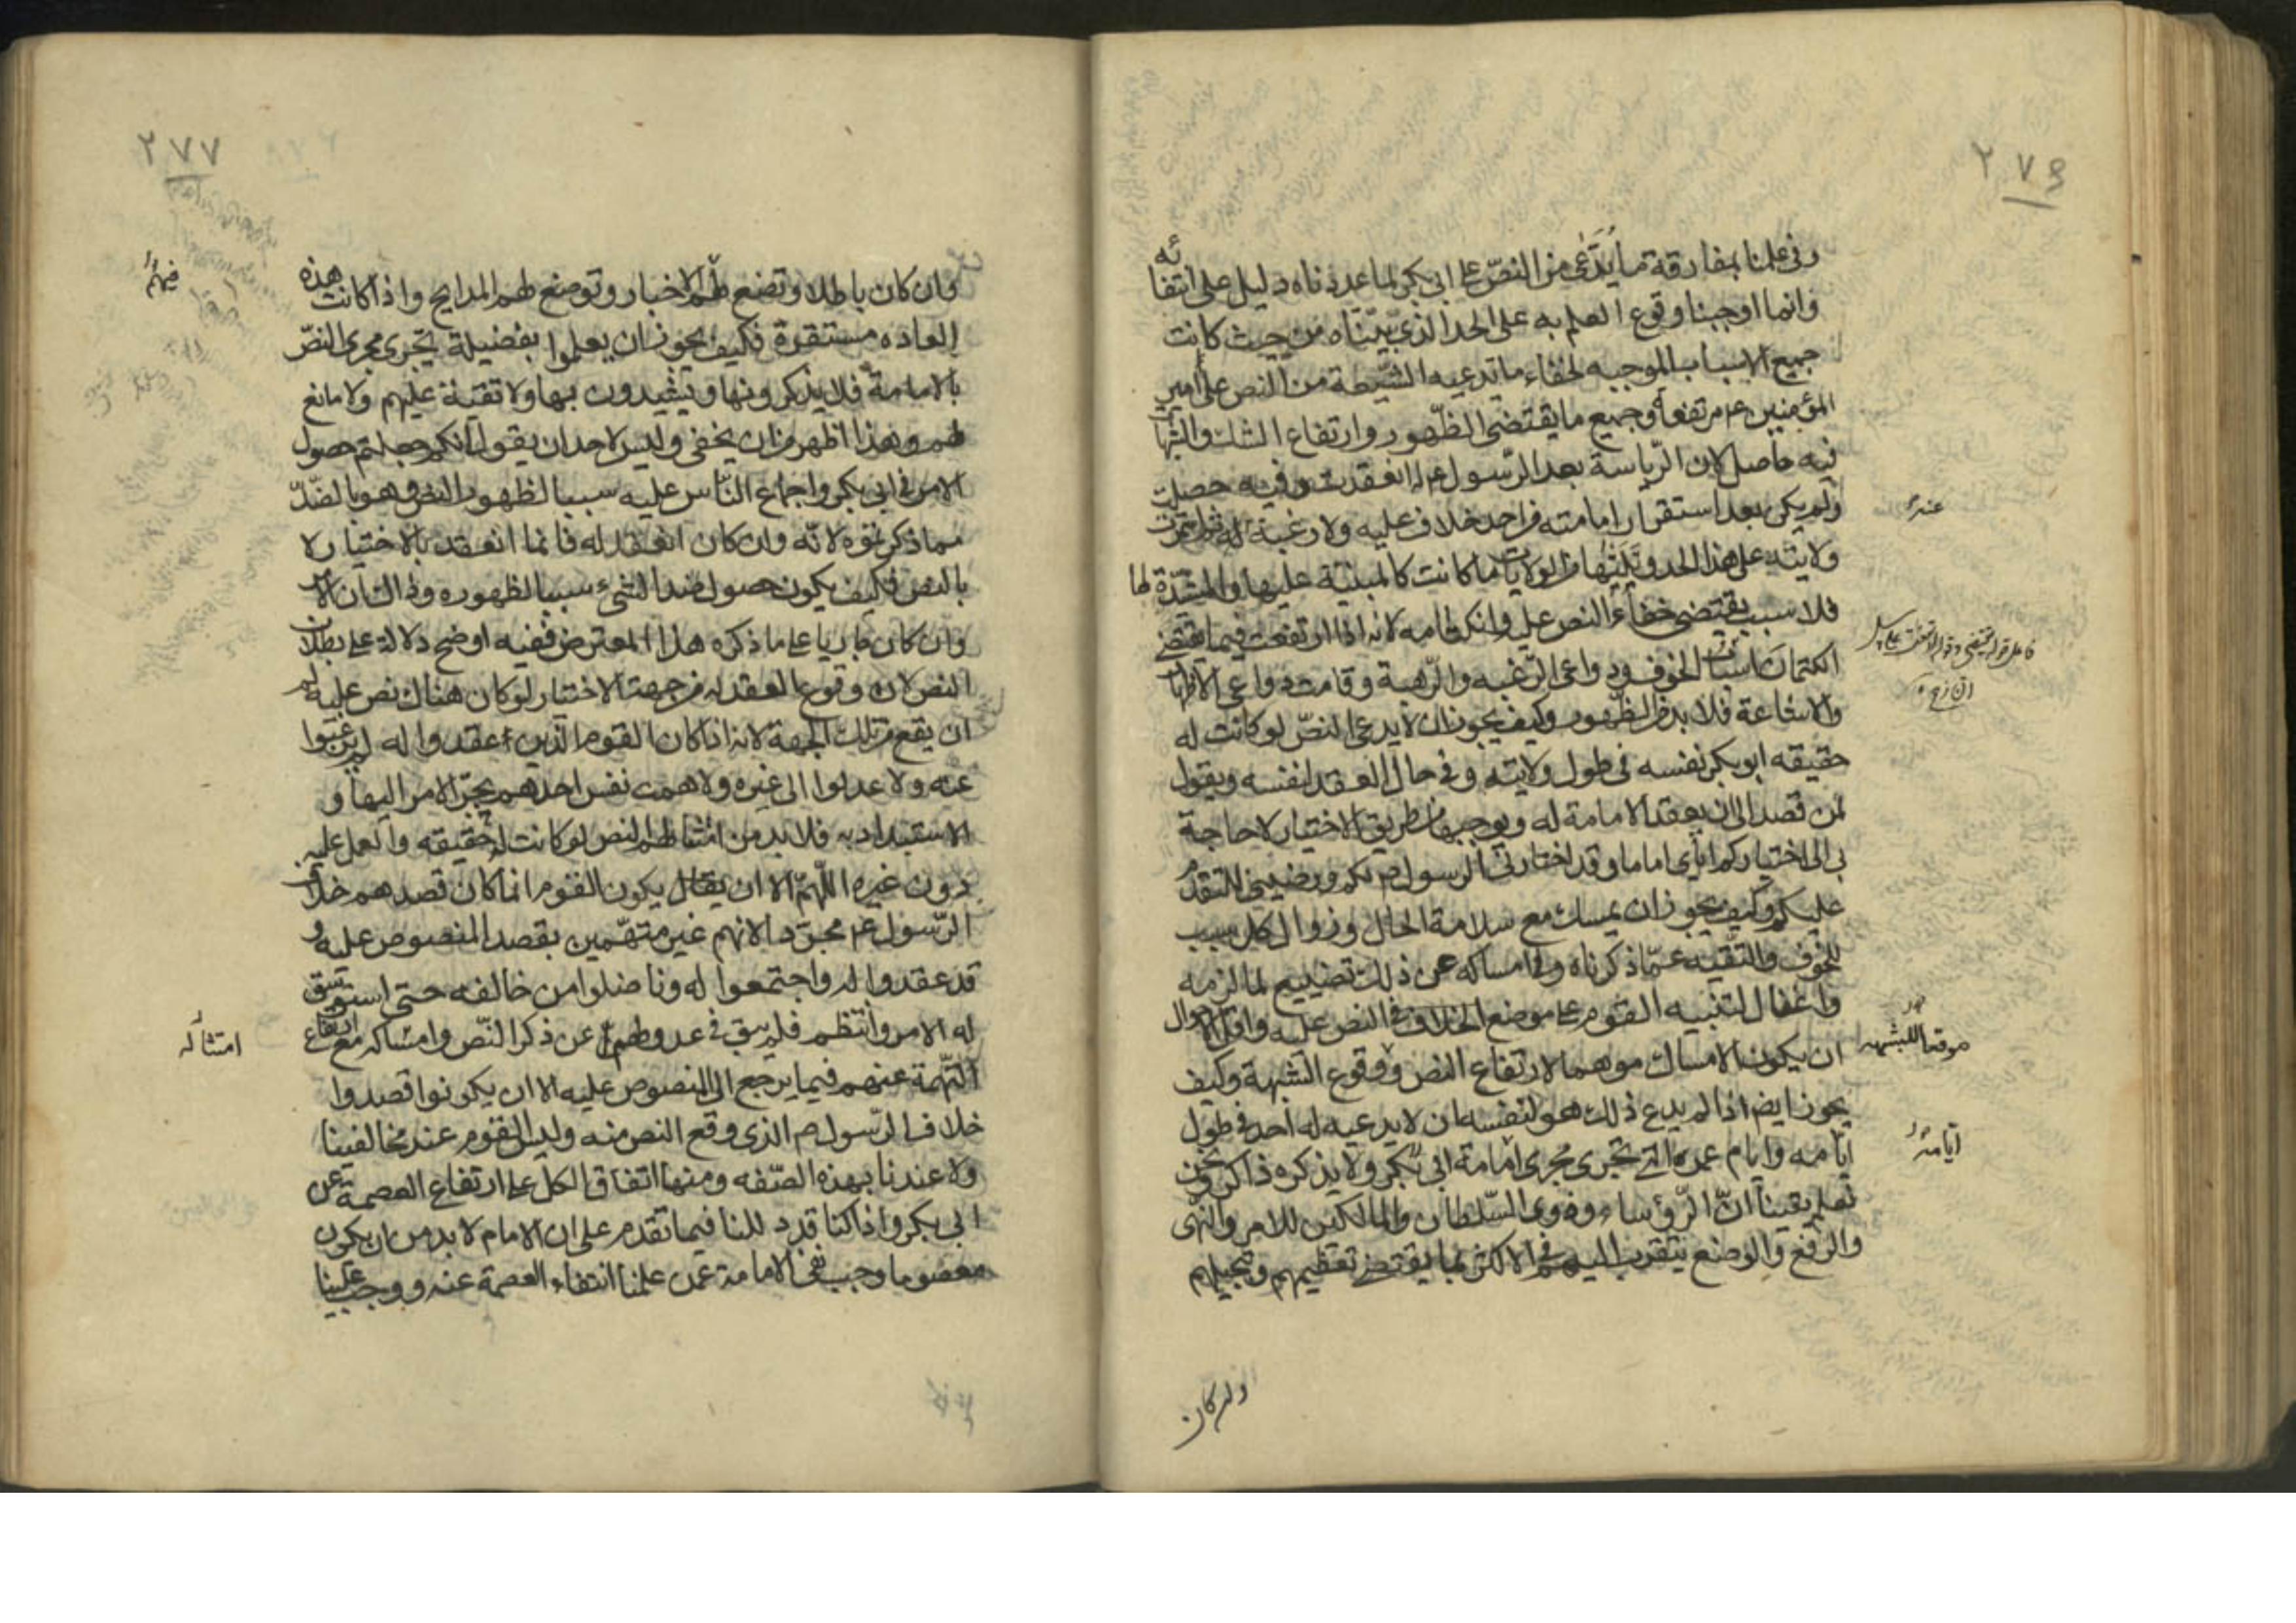 ٢٧٦
وفي علمنا بمفارقة ما يُدَّعى من النصّ على ابي بكر لما عددناه دليل على انتفائه
وانما اوجبنا وقوع العلم به على الحد الذي بيّنّاه من حيث كانت
جميع الاسباب الموجبه لخفاء ما تدعيه الشّيعة من النص على أمير
المؤمنين ع م مرتفعة وجميع ما يقتضى الظّهور وارتفاع الشك والشبهات
فيه حاصل لان الرّياسة بعد الرّسول ع م انعقدت وفيه حصلت
ولم يكن بعد استقرار امامته من احد خلاف عليه ولا رغبة له
عنه
ولايته على هذا الحد من الولايات ما كانت كالمبنية عليها والمشيّدة لها
فلا سبب يقتضى خفاء النص عليه وانكتامه لانه اذا ارتفعت فيما يقتضى
الكتمان اسباب الخوف ودواعى الرّغبه والرّهبة وقامت دواعى الاظهار
والاشاعة فلا بد من الظّهور وكيف يجوز ان لا يدعى النصّ لو كانت له
حقيقه ابو بكر نفسه فى طول ولايته وفى حال العقد لنفسه ويقول
لمن قصد الى ان يعقد الامامة له ويوجبها من طريق الاختيار لا حاجة
بى الى اختياركم اياى اماما وقد اختارنى الرسول ص لكم ورضينى للتقدم
عليكم وكيف يجوز ان يمسك مع سلامة الحال وزوال كل سبب
للخوف والتقيه عمّا ذكرناه وفى امساكه عن ذلك تضييع لما لزمه
واغفال لتنبيه القوم على موضع الخلاف فى النص عليه واقل الاحوال
ان يكون الامساك موهما لارتفاع النص ووقوع الشبهة وكيف
موقعا للشبهه
يجوز ايضا اذا لم يدع ذلك هو لنفسه ان لا يدعيه له احد فى طول
ايامه وايام عمر التى تجرى مجرى امامة ابى بكر ولا يذكره ذاكر ونحن
ايّامه
نعلم يقيناً انّ الرّؤساء وذوى السّلطان والمالكين للامر والنّهى
والرّفع والوضع يتقرب اليهم فى الاكثر بما يقتضى تعظيمهم وتبجيلهم
وان كان
٢٧٧
وان كان باطلا وتصنع لهم الاخبار وتوضع لهم المدايح واذا كانت هذه
فيهم
العاده مستقرة فكيف يجوز ان يعلموا بفضيلة تجرى مجرى النصّ
بالامامة فلا يذكرونها ويشيدون بها ولا تقيّة عليهم ولا مانع
لهم وهذا اظهر من ان يخفى وليس لاحد ان يقول انكم جعلتم حصول
الامر فى ابى بكر واجماع النّاس عليه سببا لظهور النص وهو بالضّدّ
مما ذكرتموه لانّه وان كان انعقد له فانما انعقد بالاختيار لا
بالنص فكيف يكون حصول ضد الشىء سببا لظهوره وذلك ان الامر
وان كان جاريا على ما ذكره هذا المعترض ففيه اوضح دلالة على بطلان
النص لان وقوع العقد له من جهة الاختيار لو كان هناك نص عليه لم
ان يقع من تلك الجهة لانه اذا كان القوم الّذين عقدوا له لم يرغبوا
عنه ولا عدلوا الى غيره ولا همت نفس احدهم بجرّ الامر اليها و
الاستبداد به فلا بد من امتثالهم النص لو كانت له حقيقه والعمل عليه
دون غيره اللّهمّ الا ان يقال يكون القوم انما كان قصدهم خلاف
الرّسول ع م مجرّدا لانهم غير متهّمين بقصد المنصوص عليه و
قد عقدوا له واجتمعوا له وناضلوا من خالفه حتى استوسق
له الامر وانتظم فلم يبق فى عدولهم عن ذكر النّص وامساكه مع ارتفاع
امتثاله
التّهمة عنهم فيما يرجع الى المنصوص عليه الا ان يكونوا قصدوا
خلاف الرّسول ص الذى وقع النص منه وليس القوم عند مخالفينا
ولا عندنا بهذه الصّفه ومنها اتفاق الكل على ارتفاع العصمة عن
ابى بكر واذا كنا قد دللنا فيما تقدم على ان الامام لا بد من ان يكون
معصوما وجب نفى الامامة عمن علمنا انتفاء العصمة عنه ووجب علينا